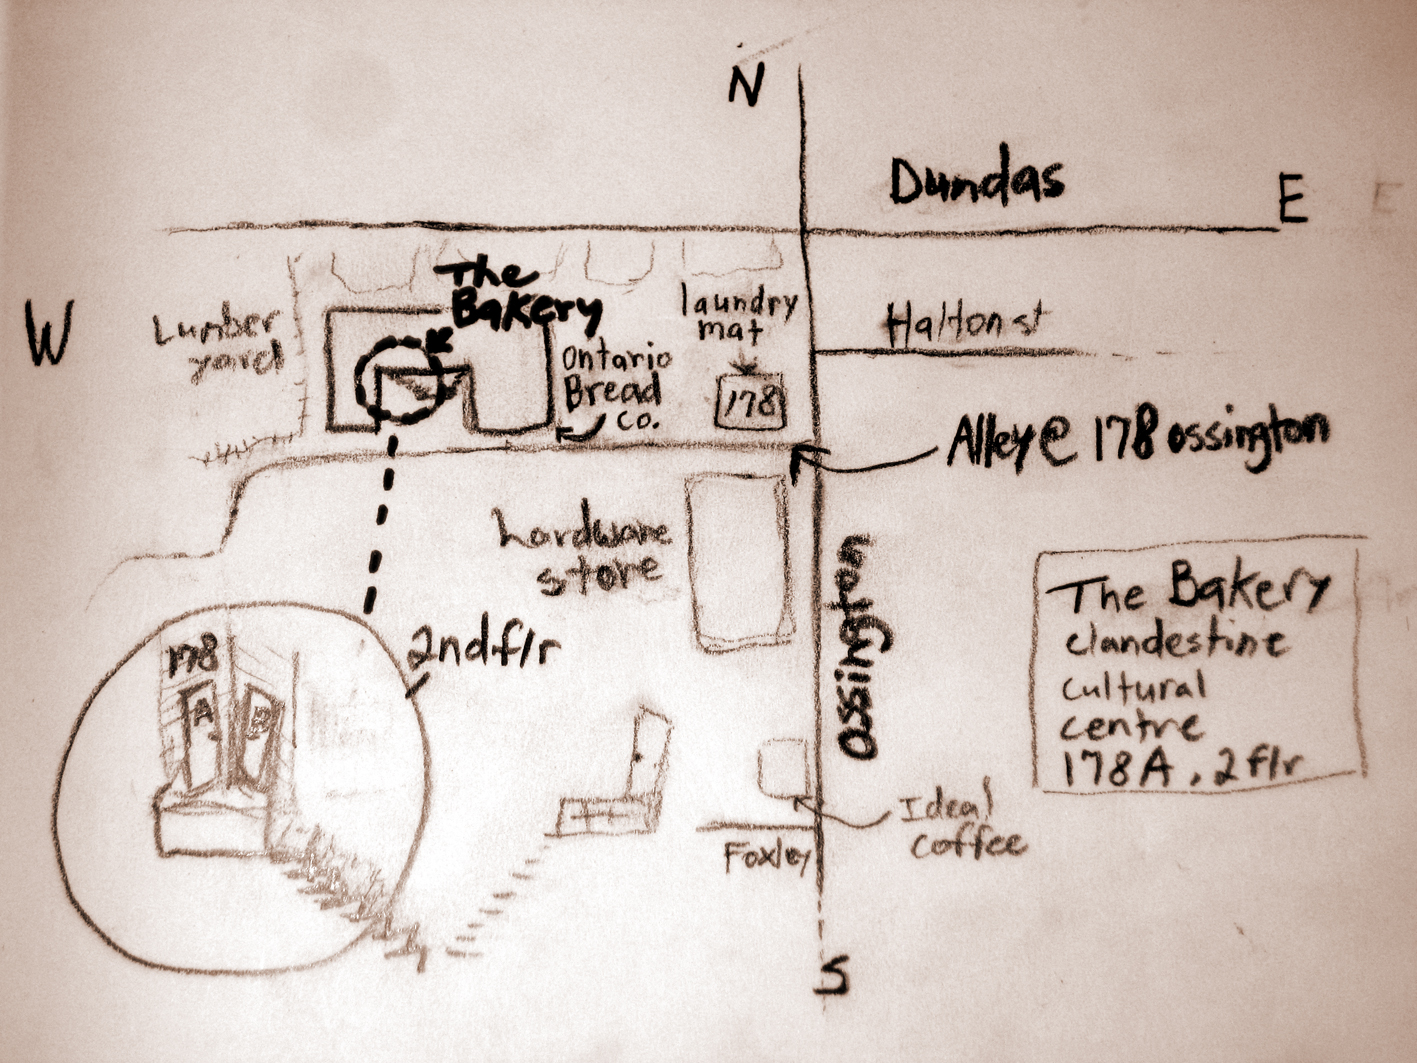 N
Dundas
E
W
Lumber
yard
The
Bakery
Ontario
Bread
Co.
laundry
mat
178
Halton st
Alley @ 178 ossington
hardware
store
Ossington
2nd flr
178
A
B
The Bakery
clandestine
cultural
centre
178A, 2 flr
Ideal
coffee
Foxley
S